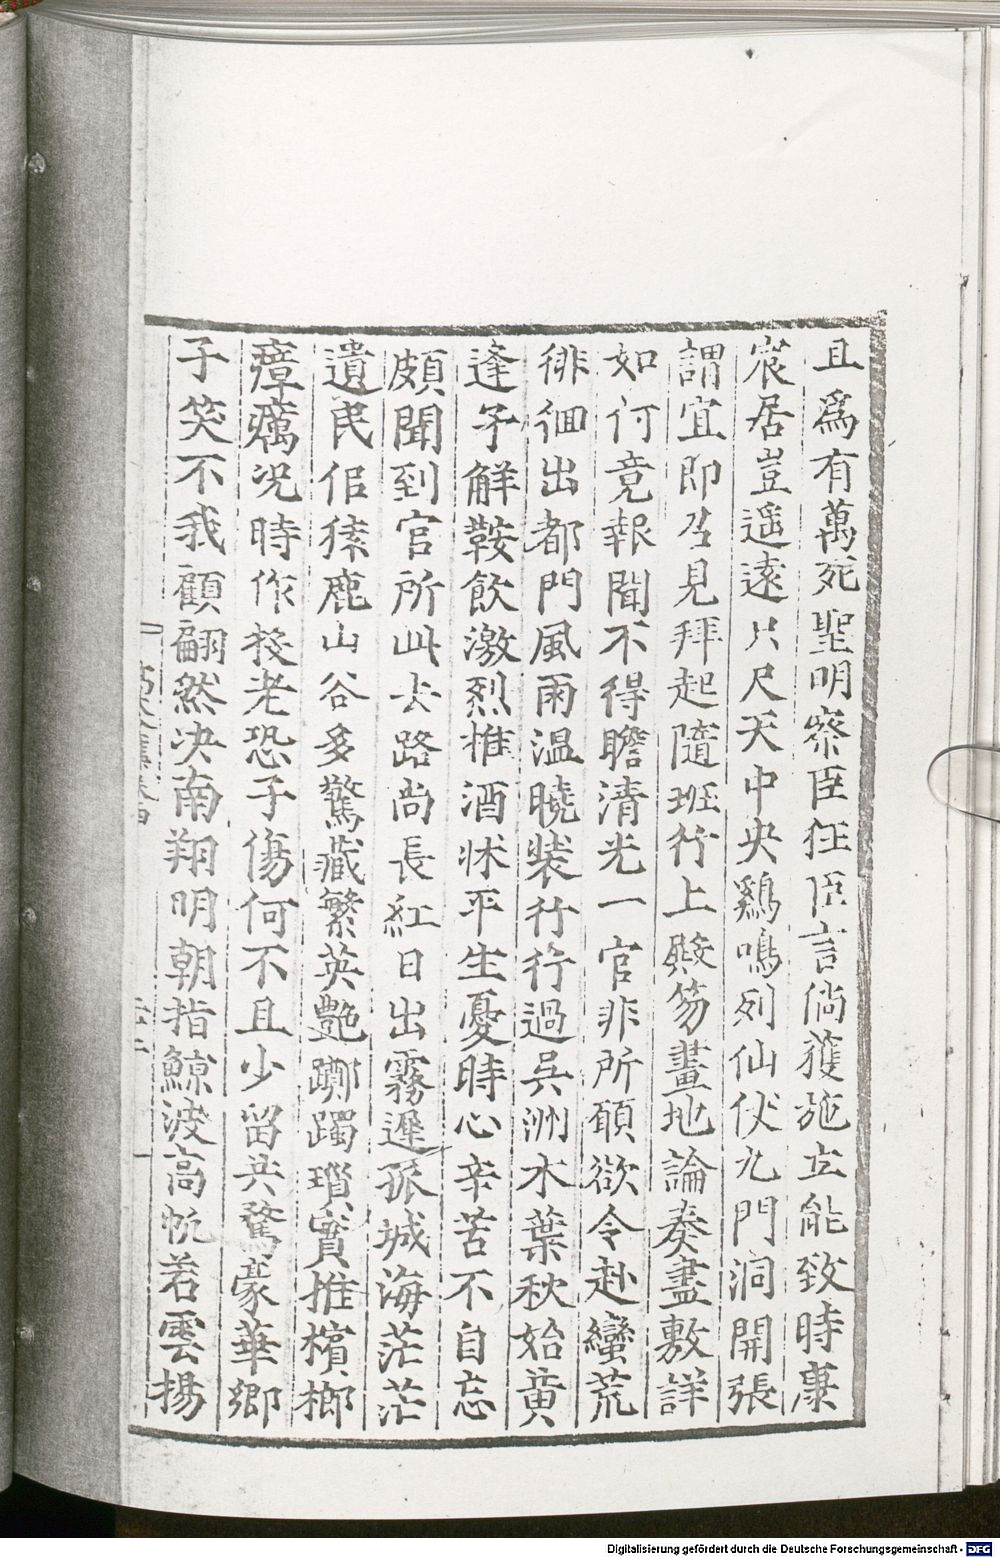 且爲有萬死聖明察臣狂臣言倘獲施立能致時康
宸居豈遥遠只尺天中央鷄鳴列仙伏九門洞開張
謂宜即召見拜起隨班行上殿笏畫地論奏盡敷詳
如何竟報聞不得瞻清光一官非所願欲令赴蠻荒
徘徊出都門風雨温曉装行行過吳洲水葉秋始黄
逢予解鞍飲激烈推酒牀平生憂時心辛苦不自忘
頗聞到官所此去路尚長紅日出霧遲孤城海茫茫
遺民侣猱鹿山谷多驚藏繁英艷躑躅瑣實推檳榔
瘴癘况時作投老恐子傷何不且少留共驁豪華鄉
子笑不我顧翩然决南翔明朝指鯨波高帆若雲揚
Digitalisierung gefördert durch die Deutsche Forschungsgemeinschaft - DFG